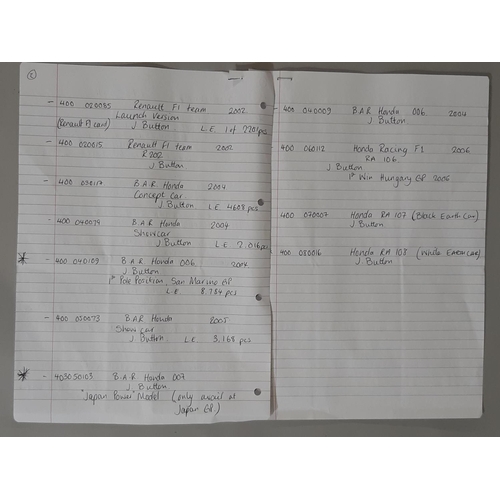 5
- 400 020085 Renault F1 team 2002
Launch Version
(Renault F1 card) J Button L.E. 1 of 7701 pcs
- 400 020015 Renault F1 team 2002
R202
J Button
- 400 030117 B.A.R Honda 2004
Concept Car
J Button L.E 4608 pcs
- 400 040079 B.A.R Honda 2004
Showcar
J Button L.E 2,016 pcs
* - 400 040109 B.A.R Honda 006 2004
J Button
1st Pole Position San Marino GP
L.E 8,784 pcs
- 400 050073 B.A.R Honda 2005
Show car
J Button. L.E 3,168 pcs
* - 403050103 B.A.R Honda 007
J. Button
"Japan Power" Model (only avail at
Japan GP.)
- 400 040009 B.A.R Honda 006 2004
J Button
- 400 060112 Honda Racing F1 2006
RA 106
J Button
1st Win Hungary GP 2006
- 400 070007 Honda RA 107 (Black Earth Car)
J Button
- 400 080016 Honda RA 108 (White Earth Car)
J. Button